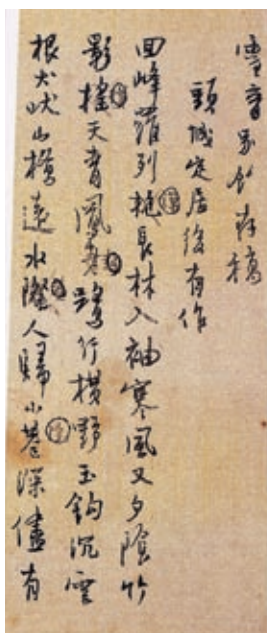 存稿
頭城定居後有作
回峰羅列長林入袖寒風又夕陰竹
影搖天青鳳舞鷺行橫野玉鈎沉雲
根犬吠山橋遠水際人歸小巷深儘有